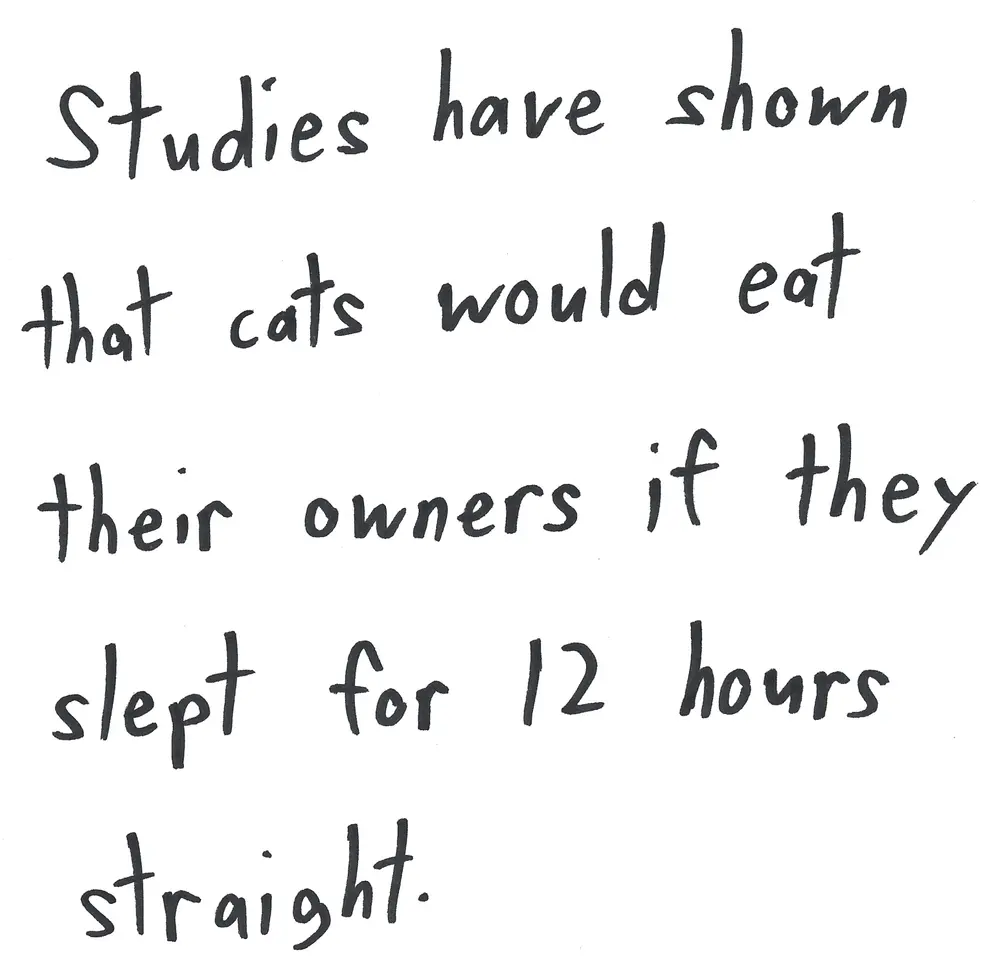 Studies have shown
that cats would eat
their owners if they
slept for 12 hours
straight.